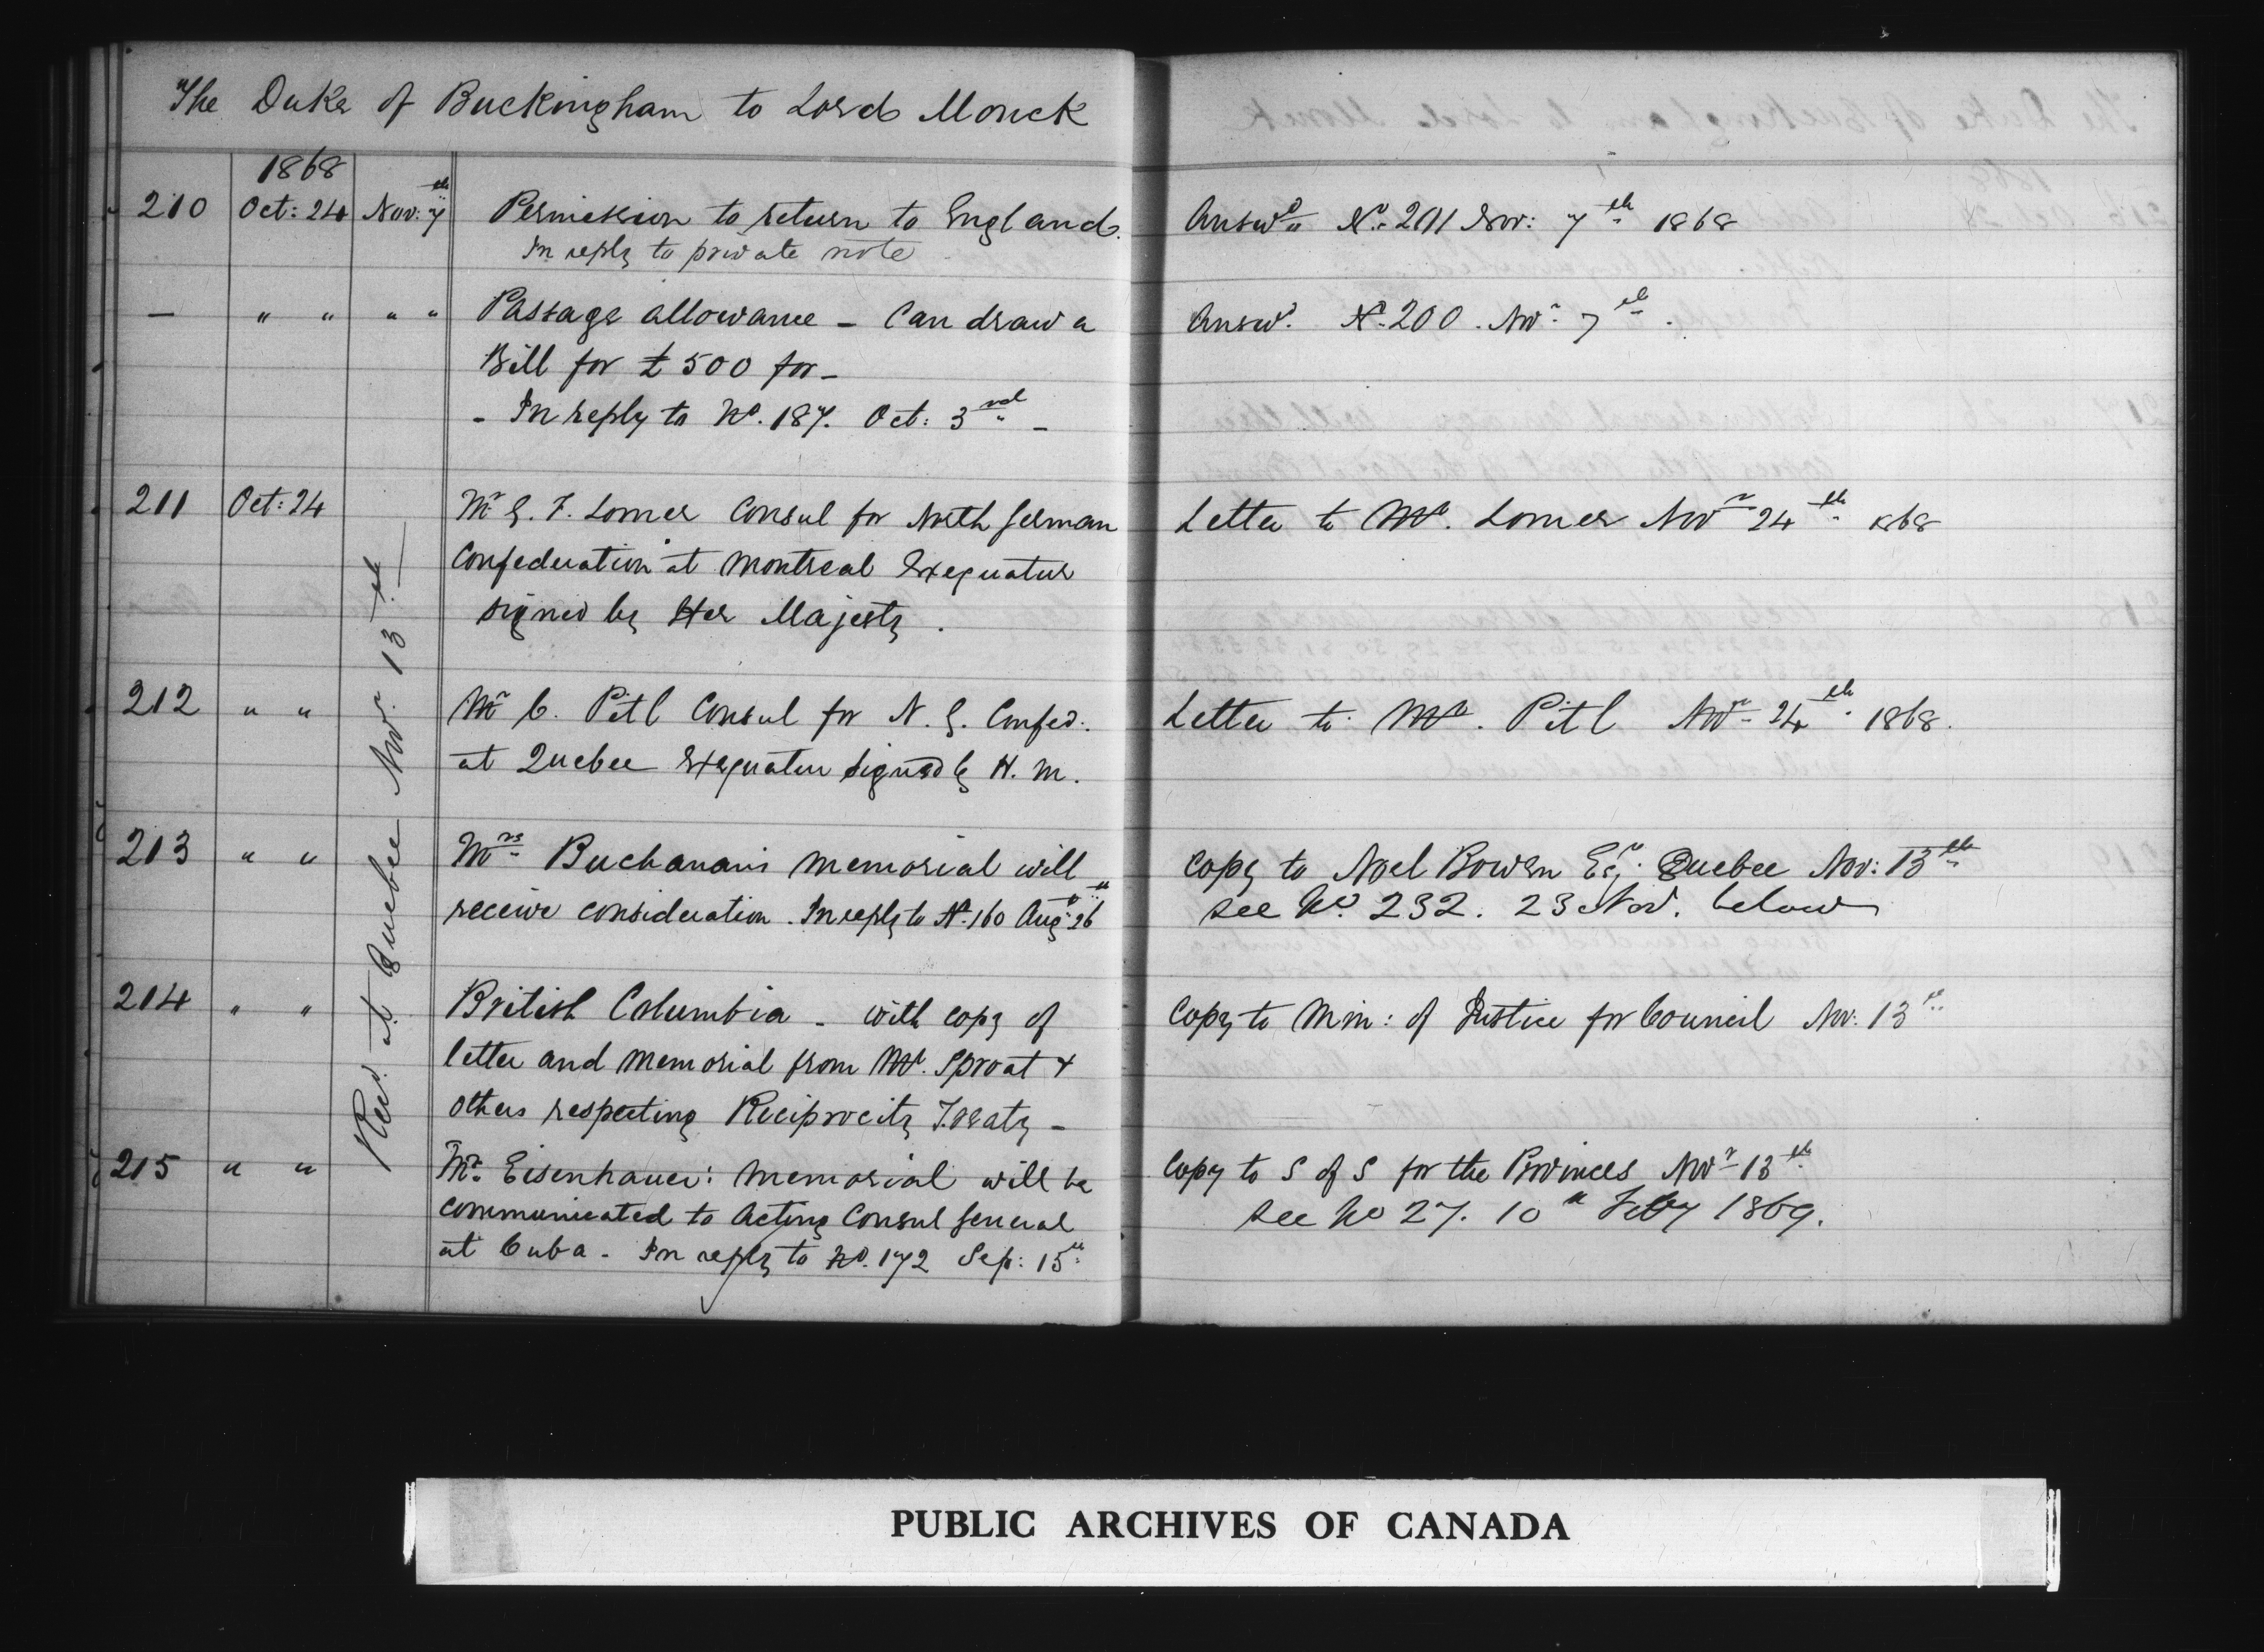 The Duke of Buckingham to Lord Monck
1868
210 Oct: 24 Nov: 7th Permission to return to England. Answd No. 201 Nov: 7th 1868
In reply to private note
— " " " " Passage allowance – Can draw a Answd. No. 200. Novr 7th.
Bill for £500 for –
– In reply to No. 187. Oct: 3rd –
211 Oct: 24 Mr G. F. Lomer Consul for North German Letter to Mr. Lomer Novr 24th 1868
Confederation at Montreal Exequatur
signed by Her Majesty.
212 " " Mr C. Pitl Consul for N. G. Confed: Letter to Mr. Pitl Novr 24th 1868.
at Quebec Exequatur signed by H. M.
213 " " Mrs Buchanan's memorial will Copy to Noel Bowen Esqr. Quebec Nov: 13th
receive consideration. In reply to No. 160 Aug: 26th see No. 232. 23 Nov. below
214 " " British Columbia – with copy of Copy to Min: of Justice for Council Nov: 13th
letter and memorial from Mr. Sproat &
others respecting Reciprocity Treaty –
215 " " Mr. Eisenhauer: memorial will be Copy to S of S for the Provinces Novr 13th
communicated to Acting Consul General see No 27. 10th Feby 1869.
at Cuba – In reply to No. 172 Sep: 15th
Recd. at Quebec Novr. 13th
PUBLIC ARCHIVES OF CANADA